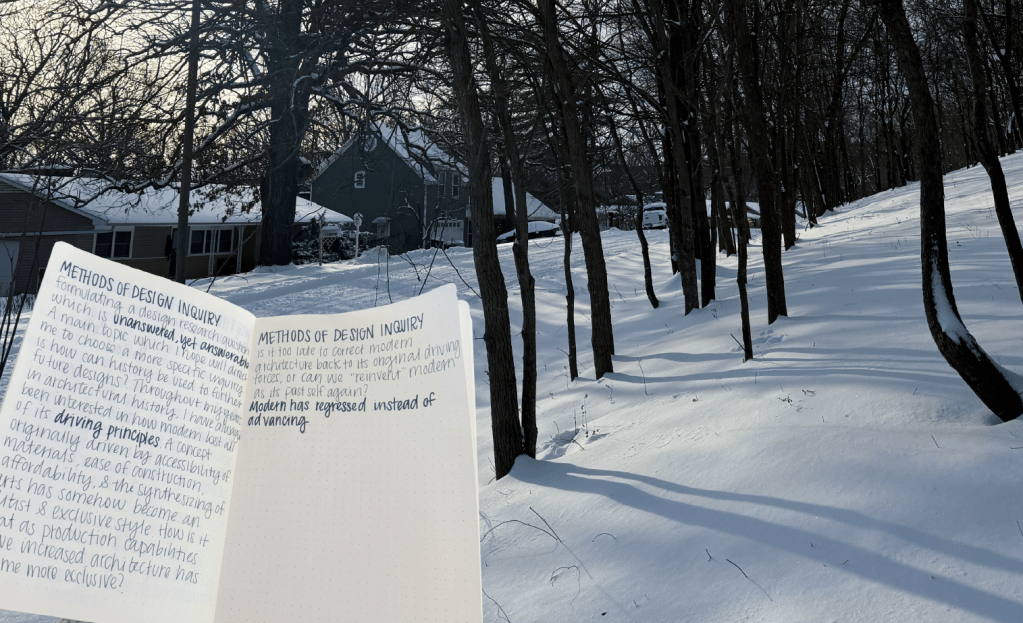 METHODS OF DESIGN INQUIRY
formulating a design research
which is unanswered, yet answerable
A main topic which I hope will drive
me to choose a more specific inquiry
is how can history be used to further
future designs? Throughout my years
in architectural history. I have always
been interested in how modern lost all
of its driving principles. A concept
originally driven by accessibility of
materials, ease of construction,
affordability, & the synthesizing of
arts has somehow become an
itist & exclusive style How is it
at as production capabilities
ve increased architecture has
me more ecclusive?
METHODS OF DESIGN INQUIRY
is it too late to correct modern
architecture back to its original driving
forces, or can we "reinvent" modern
as its past self again?
Modern has regressed instead of
advancing.